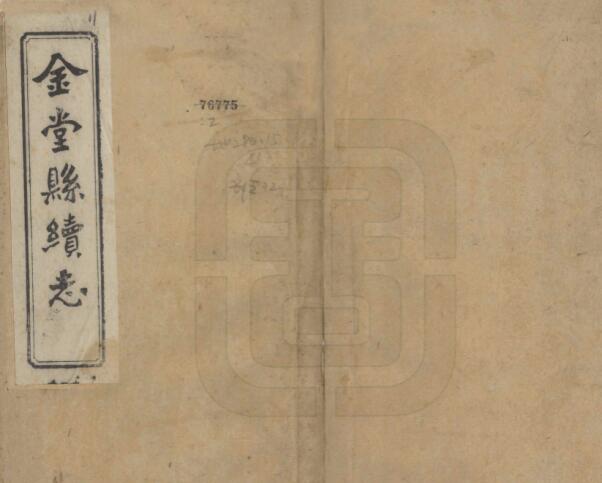 金堂縣續志
76775